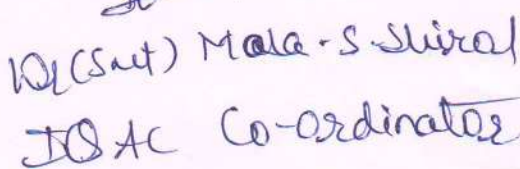 Dr (Smt) Mala.S.Shiral
IQAC Co-ordinator